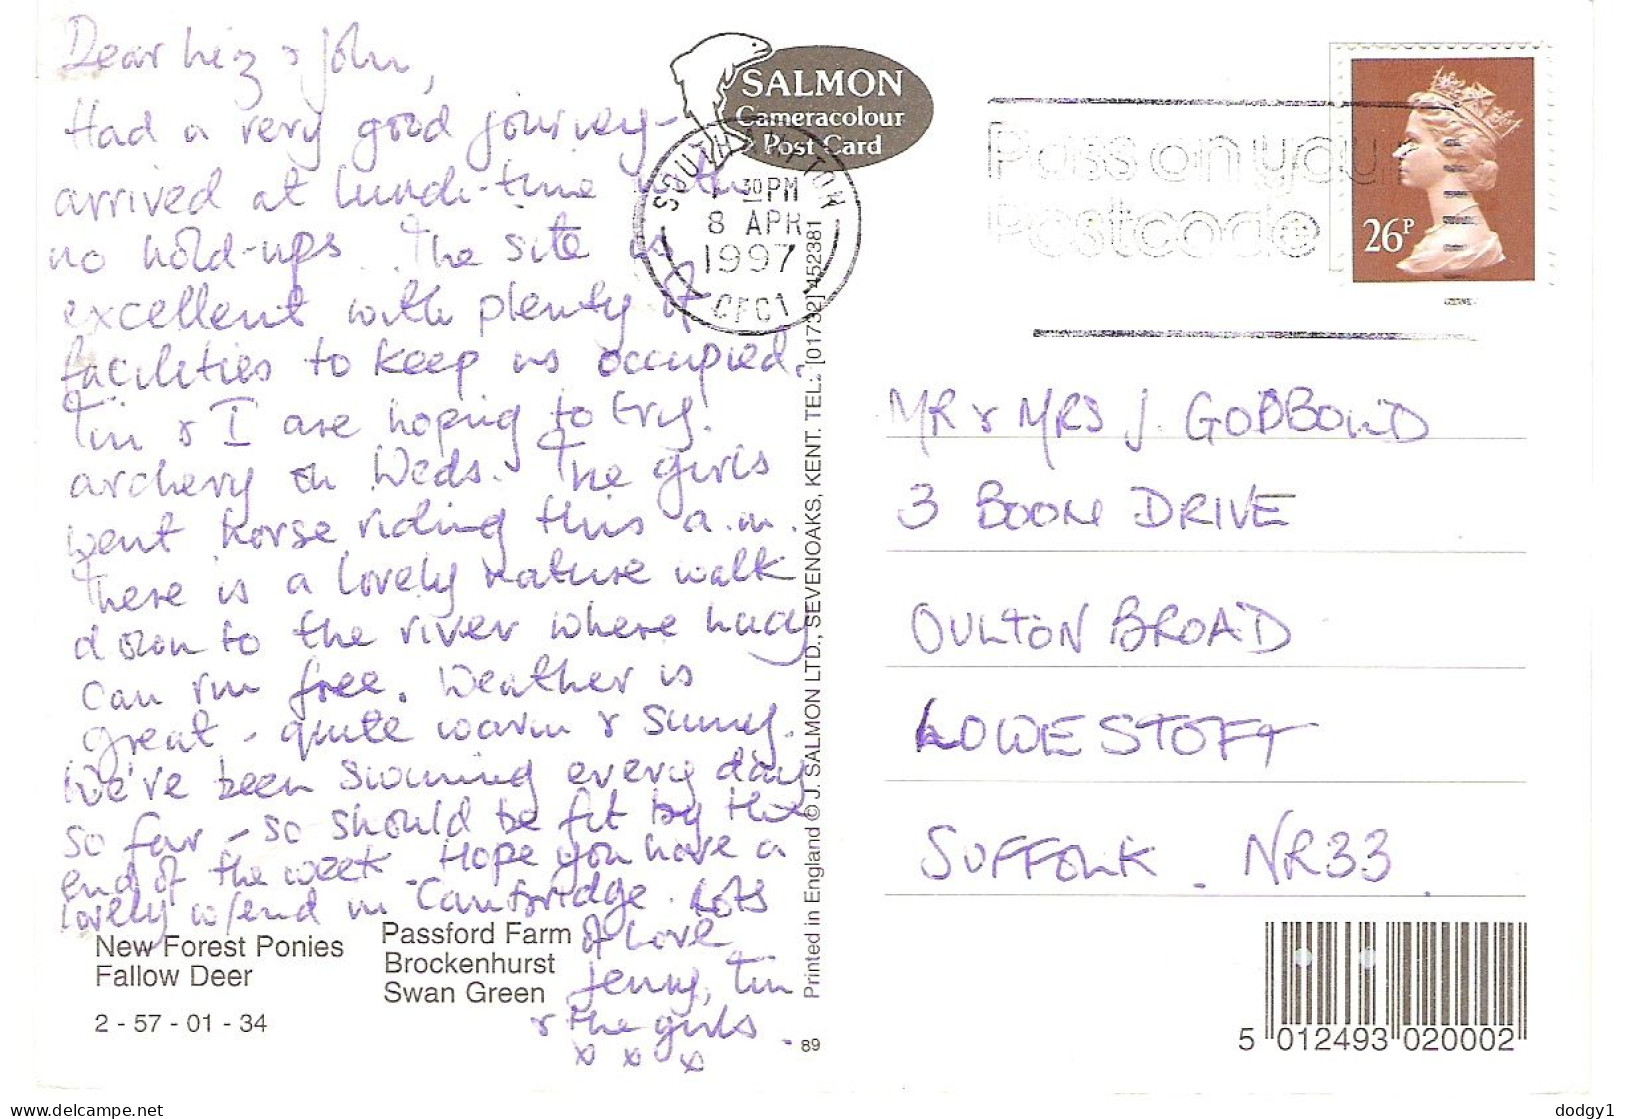 Dear Liz & John,
Had a very good journey -
arrived at lunch-time with
no hold-ups. The site is
excellent with plenty of
facilities to keep us occupied.
Tim & I are hoping to try
archery on Weds. The girls
went horse riding this a.m.
There is a lovely nature walk
down to the river where
can run free. Weather is
great - quite warm & sunny.
We've been swimming every day
so far - so should be fit by the
end of the week. Hope you have a
lovely w/end in Cambridge. Lots
of Love
Jenny, Tim
& the girls
x x x
New Forest Ponies
Fallow Deer
2 - 57 - 01 - 34
Passford Farm
Brockenhurst
Swan Green
SALMON
Cameracolour
Post Card
SOUTHAMPTON
30 PM
8 APR
1997
Printed in England © J. SALMON LTD., SEVENOAKS, KENT. TEL: [01732] 452381
89
Pass on your
Postcode
26P
MR & MRS J. GODBOLD
3 BOON DRIVE
OULTON BROAD
LOWESTOFT
SUFFOLK. NR33.
5 012493 020002
dodgy1